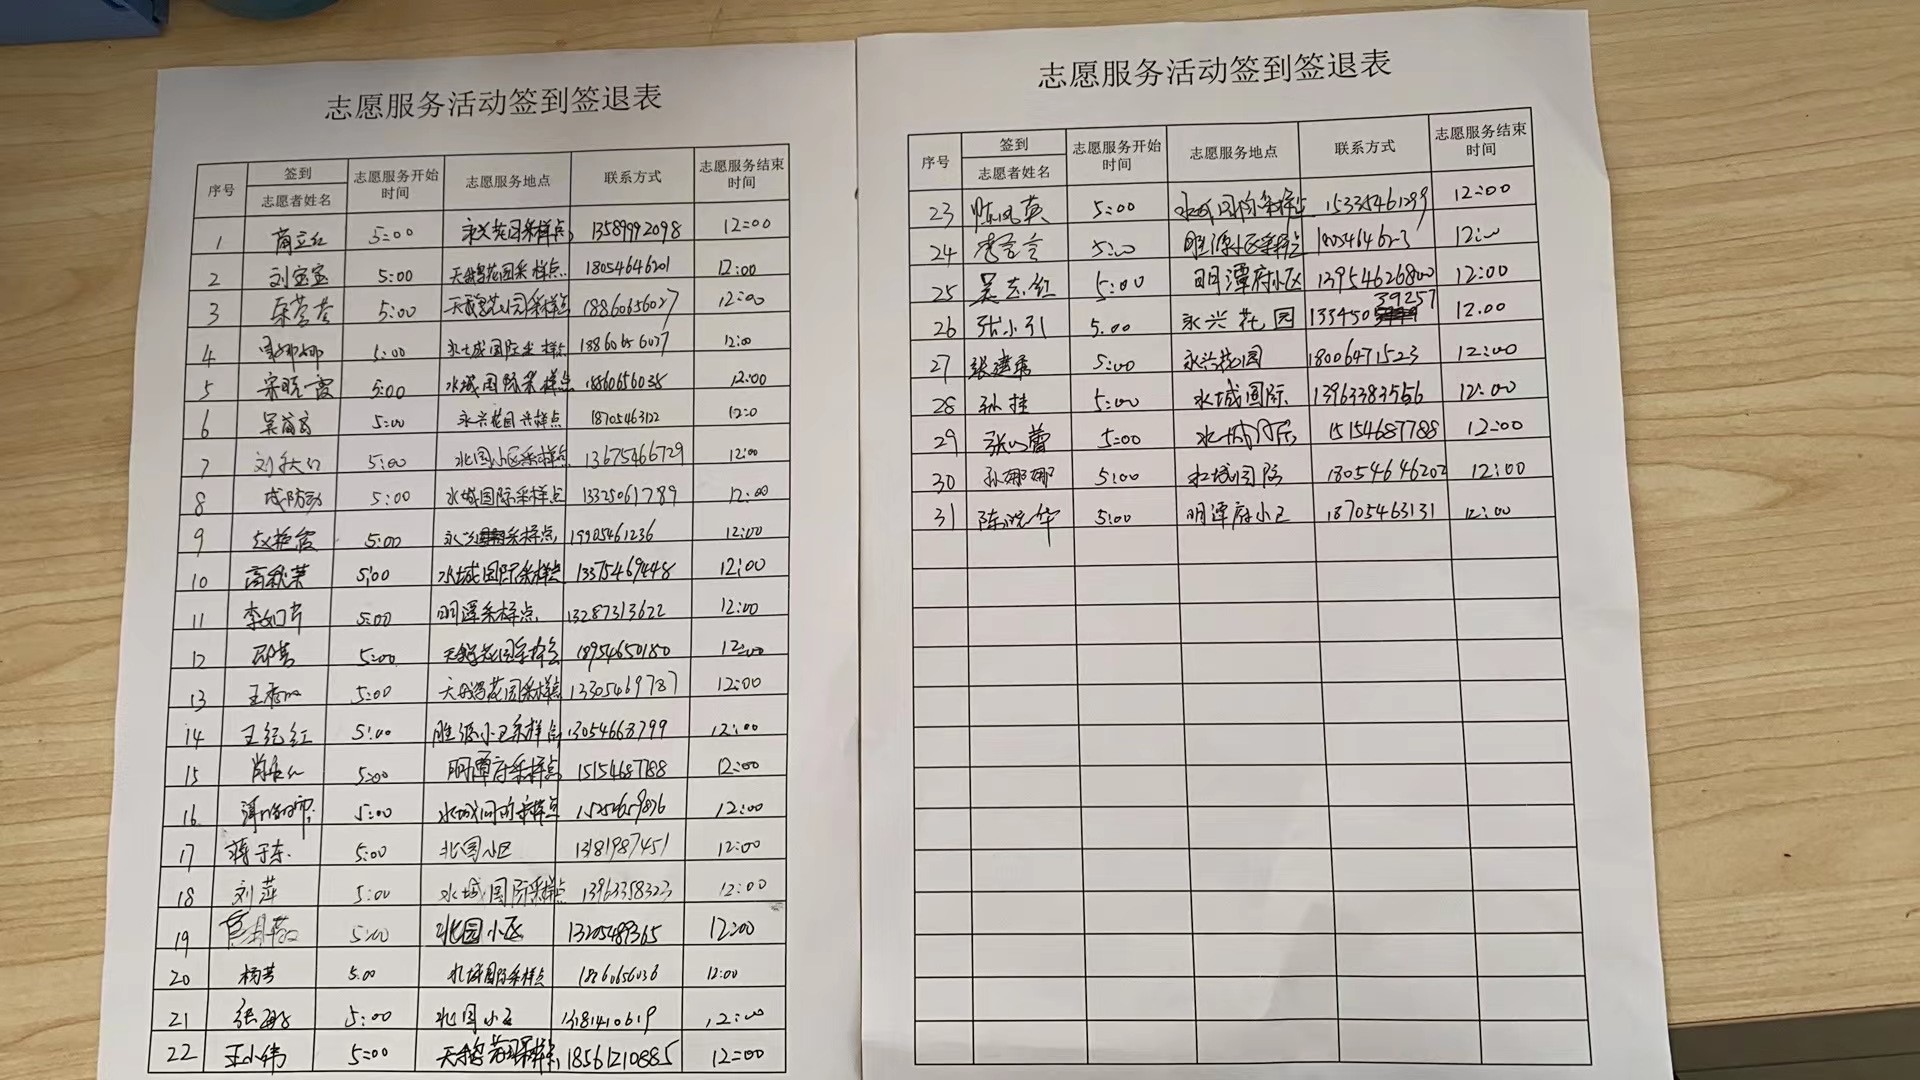 志愿服务活动签到签退表
序号 签到 志愿者姓名 志愿服务开始时间 志愿服务地点 联系方式 志愿服务结束时间
1 5:00 永兴花园采样点 13589992098 12:00
2 刘宝宝 5:00 天鹅花园采样点 18054646201 12:00
3 5:00 天鹅花园采样点 18860656027 12:00
4 5:00 水城国际采样点 12:00
5 宋晓霞 5:00 水城国际采样点 18860656035 12:00
6 5:00 永兴花园采样点 18705463122 12:0
7 刘秋红 5:00 北园小区采样点 13675466729 12:00
8 5:00 水城国际采样点 13325061789 12:00
9 赵艳霞 5:00 永兴 采样点 19905461236 12:00
10 高秋菊 5:00 水城国际采样点 13375469448 12:00
11 5:00 明潭采样点 13287313622 12:00
12 5:00 天鹅花园采样点 18954650180 12:00
13 5:00 天鹅花园采样点 13305469787 12:00
14 王纪红 5:00 胜源小区采样点 13054663799 12:00
15 5:00 明潭府采样点 15154687788 12:00
16 5:00 采样点 12:00
17 蒋于东 5:00 北园小区 13181987451 12:00
18 刘萍 5:00 水城国际采样点 12:00
19 5:00 北园小区 13205489365 12:00
20 杨芳 5:00 水城国际采样点 18860656036 12:00
21 5:00 北园小区 13181410619 12:00
22 王小伟 5:00 天鹅花园采样点 18561210885 12:00
志愿服务活动签到签退表
序号 签到 志愿者姓名 志愿服务开始时间 志愿服务地点 联系方式 志愿服务结束时间
23 陈凤英 5:00 水城国际采样点 15335461299 12:00
24 5:00 胜源小区采样点 12:00
25 吴志红 5:00 明潭府小区 13954626800 12:00
26 张小引 5.00 永兴花园 13345039257 12.00
27 5:00 永兴花园 18006471523 12:00
28 孙桂 5:00 水城国际 13963383566 12:00
29 张心蕾 5:00 15154687788 12:00
30 孙娜娜 5:00 水城国际 18054646202 12:00
31 陈晓华 5:00 明潭府小区 18705463131 12:00